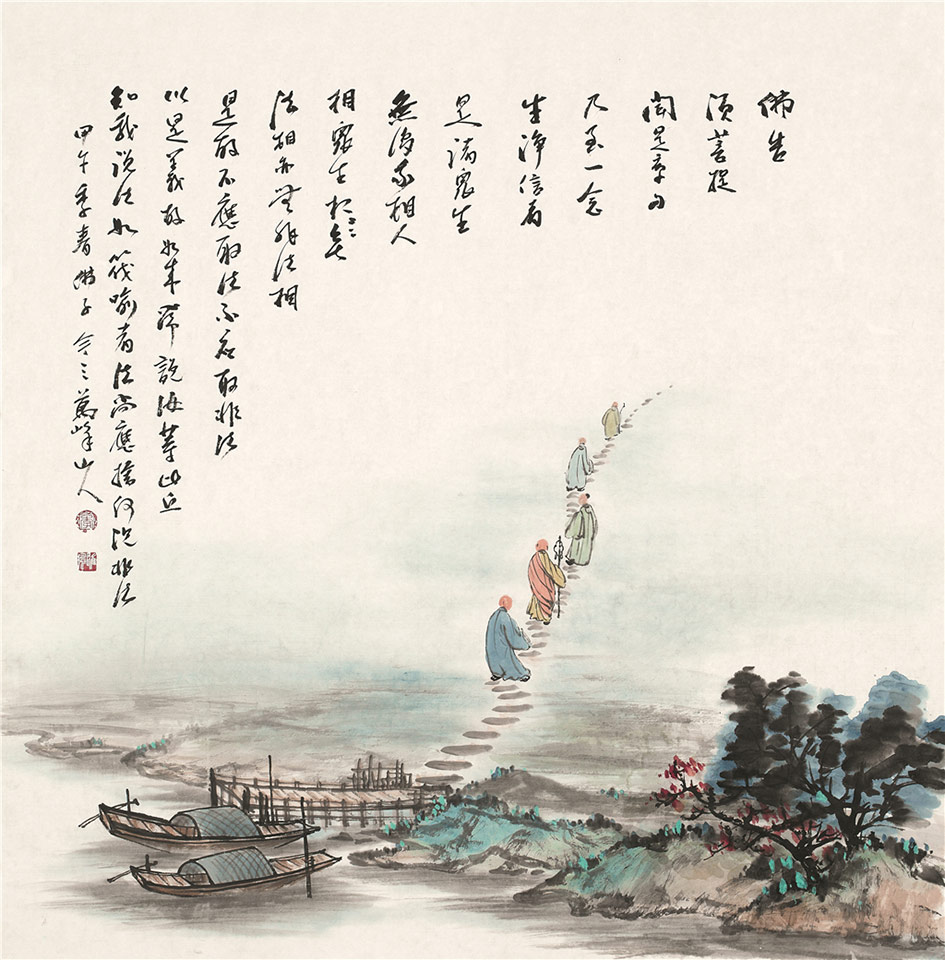 佛告
須菩提
聞是章句
乃至一念
生淨信者
是諸眾生
無復我相人
相眾生
法相亦無非法相
是故不應取法不應取非法
以是義故如来常説汝等比丘
知我説法如筏喻者法尚應捨何況非法
甲午季春佛子萬峰山人